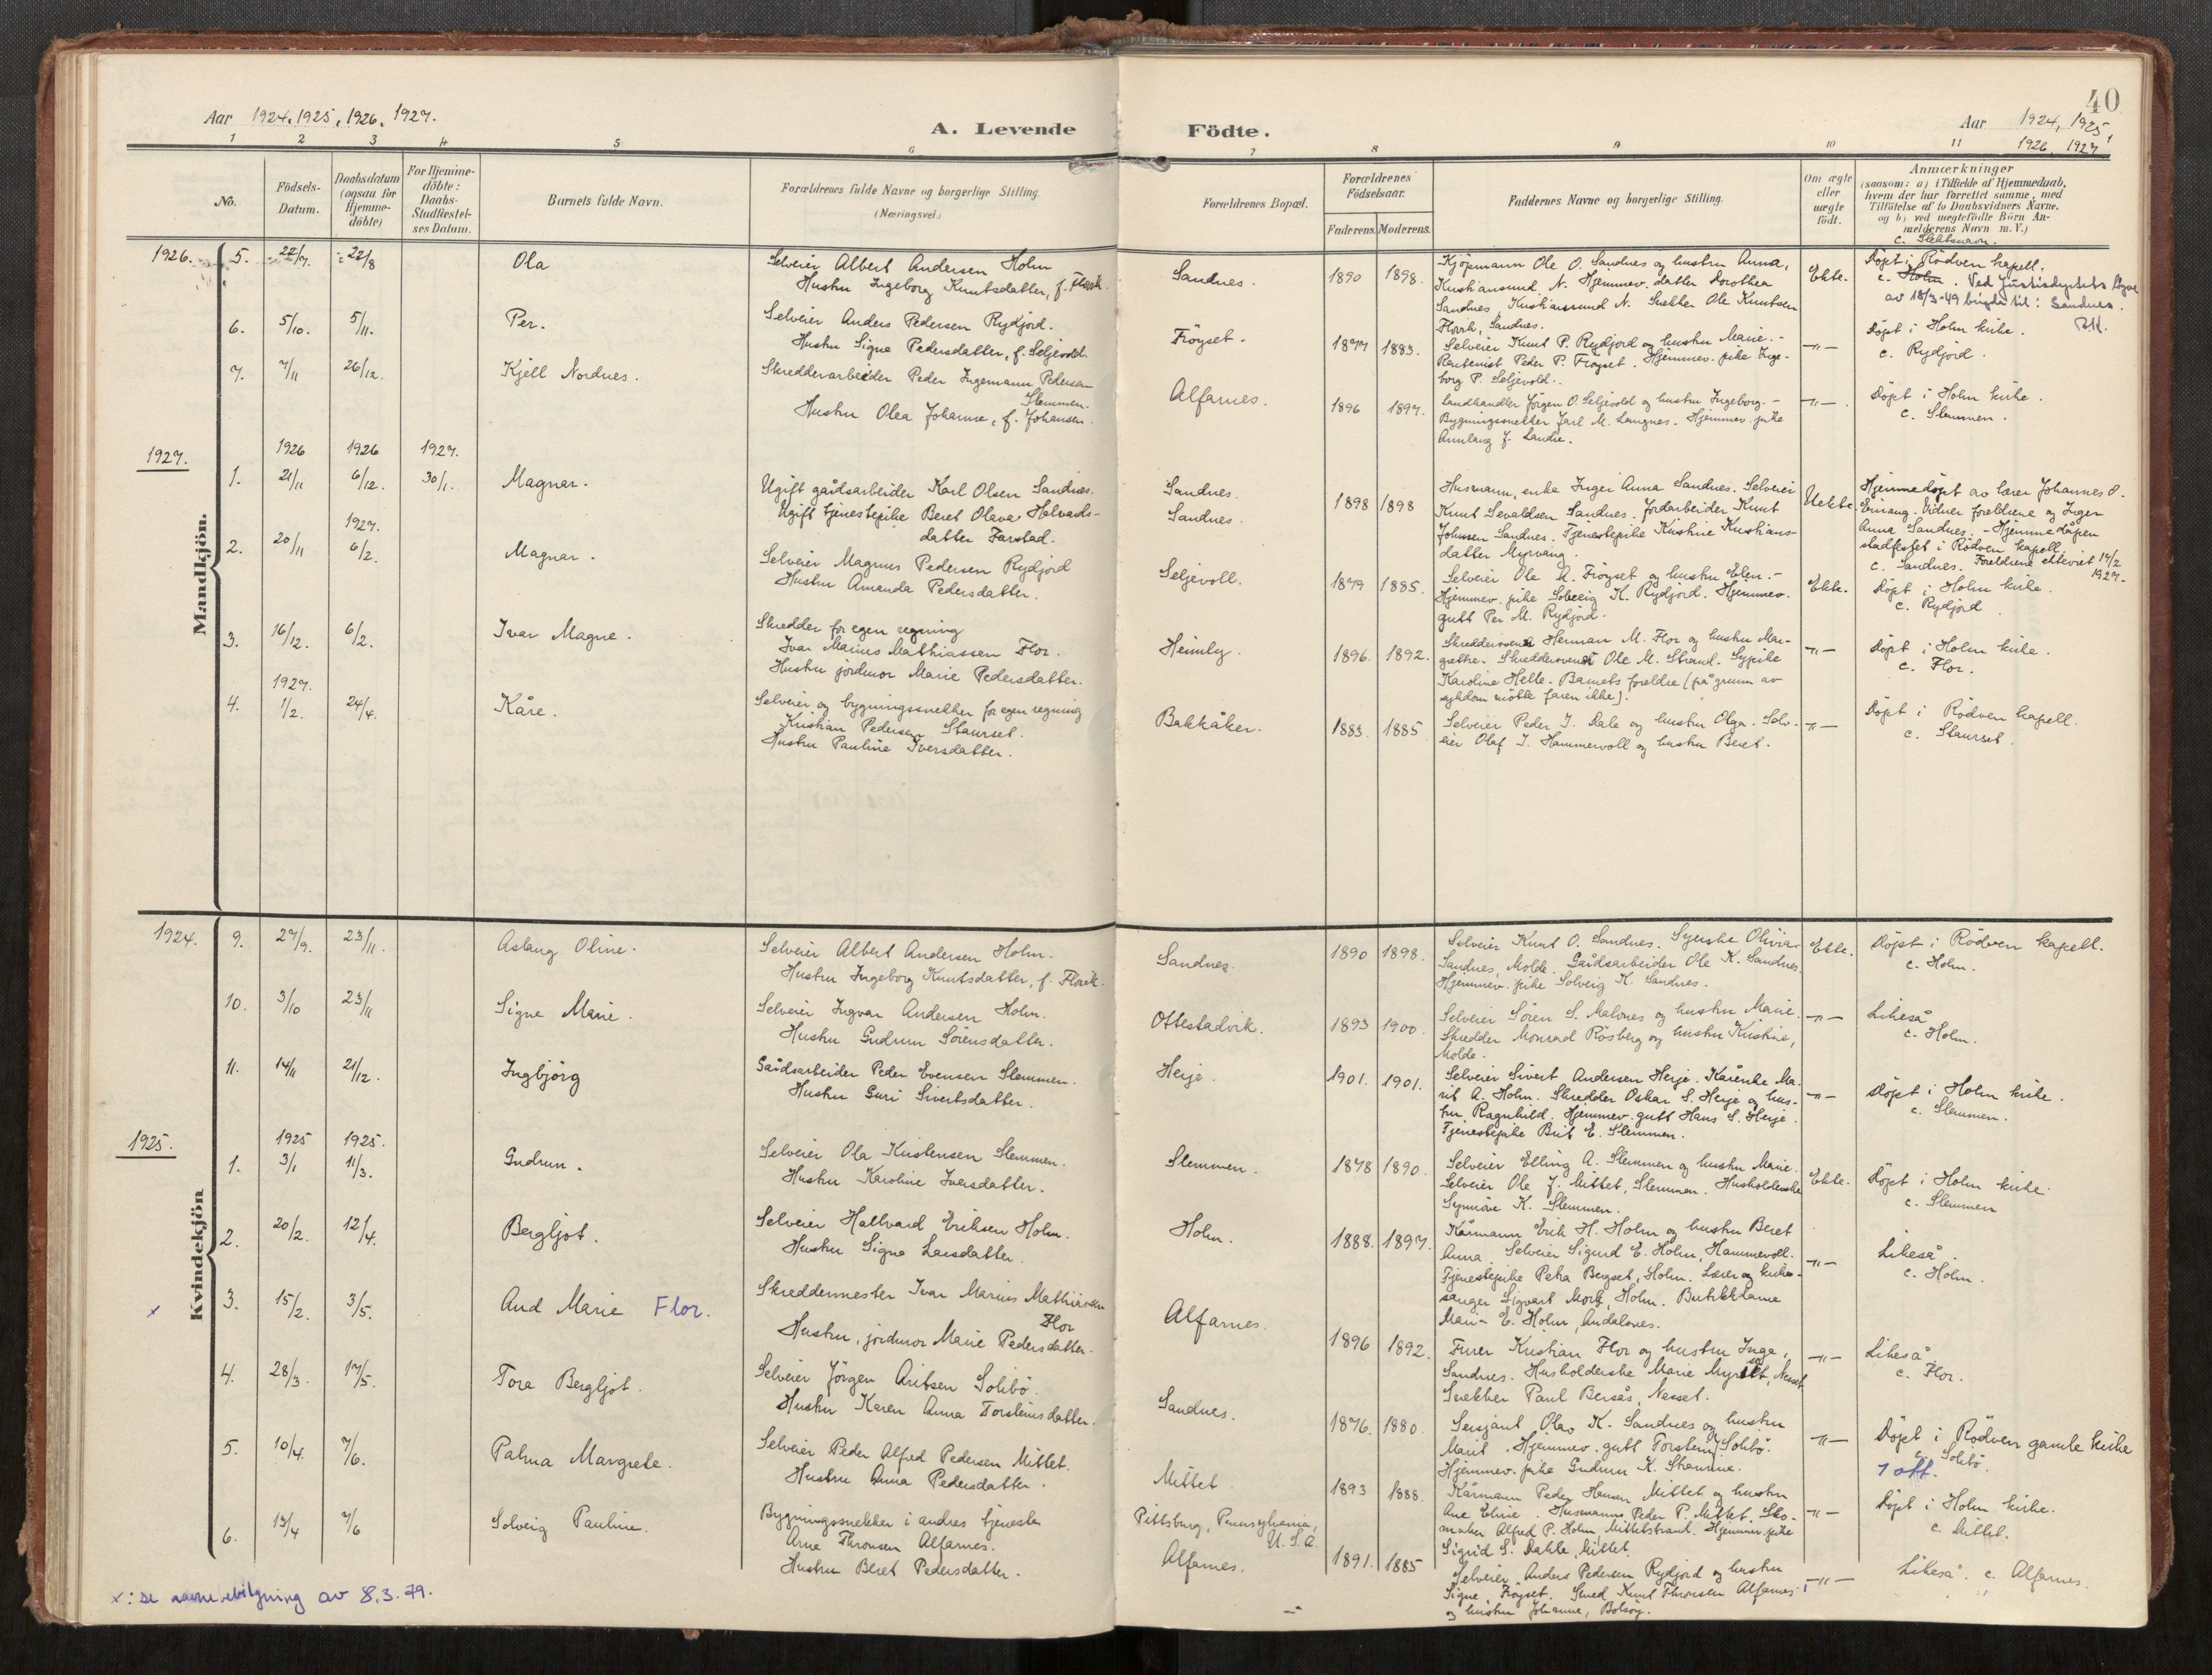 40
Aar 1924, 1925, 1926, 1927.
A. Levende Födte.
Aar 1924, 1925,
1926, 1927
1 2 3 4 5 6 7 8 9 10 11
No.
Födsels-
Datum.
Daabsdatum
(ogsaa for
Hjemme-
döbte)
For Hjemme-
döbte:
Daabs-
Stadfæstel-
ses Datum.
Barnets fulde Navn.
Forældrenes fulde Navne og borgerlige Stilling.
(Næringsvei.)
Forældrenes Bopæl.
Forældrenes
Födselsaar.
Faderens. Moderens.
Faddernes Navne og borgerlige Stilling.
Om ægte
eller
uægte
födt.
Anmærkninger
(saasom: a) i Tilfælde af Hjemmedaab,
hvem der har forrettet samme, med
Tilföielse af to Daabsvidners Navne.
og b) ved uægtefödte Börn An-
melderens Navn m. V.)
c. Slektsnavn.
Mandkjön.
1926.
5. 22/7. 22/8 Ola
Selveier Albert Andersen Holm
Hustru Ingeborg Knutsdatter, f. Flovik.
Sandnes. 1890 1898.
Kjöpmann Ole O. Sandnes og hustru Anna,
Kristiansund N. Hjemmev. datter Dorothea
Sandnes, Kristiansund N. Snekker Ole Knutsen
Flovik, Sandnes.
Ekte.
Döpt i Rödven kapell.
c. Holm. Ved Justisdeptets
av 18/3-49 til: Sandnes.
6. 5/10. 5/11. Per.
Selveier Anders Pedersen Rydjord.
Hustru Signe Pedersdatter, f. Seljevold.
Fröyset. 1877 1883.
Selveier Knut P. Rydjord og hustru Marie. -
Peder P. Fröyset. Hjemmev. pike Inge-
borg P. Seljevold.
-"-
Döpt i Holm kirke.
c. Rydjord.
7. 7/11 26/12. Kjell Nordnes.
Skredderarbeider Peder Ingemann Pedersen
Slemmen.
Hustru Olea Johanne, f. Johansen.
Alfarnes. 1896 1897.
Landhandler Jörgen O. Seljevold og hustru Ingeborg. -
Bygningssnekker Jarl M. Langnes. Hjemmev. pike
Annlaug J. Sandre.
-"-
Döpt i Holm kirke.
c. Slemmen.
1927.
1926 1926 1927.
1. 21/11 6/12. 30/1. Magnar.
Ugift gårdsarbeider Karl Olsen Sandnes.
Ugift tjenestepike Beret Olava Halvards-
datter Farstad.
Sandnes.
Sandnes.
1898 1898
Husmann, enke Inger Anna Sandnes. Selveier
Knut Sevaldsen Sandnes. Jordarbeider Knut
Johnsen Sandnes. Tjenestepike Kristine Kristians-
datter Myrvang.
Uekte.
Hjemmedöpt av lærer Johannes O.
Einang. Vidner foreldrene og Inger
Anna Sandnes. - Hjemmedåpen
stadfestet i Rödven kapell.
c. Sandnes. Foreldrene ekteviet 14/2
1927.
1927.
2. 20/11 6/2. Magnar.
Selveier Magnus Pedersen Rydjord
Hustru Amanda Pedersdatter.
Seljevoll. 1879 1885.
Selveier Ole A. Fröyset og hustru Elen. -
Hjemmev. pike Solveig K. Rydjord. Hjemmev.
gutt Per M. Rydjord.
Ekte.
Döpt i Holm kirke.
c. Rydjord
3. 16/12. 6/2. Ivar Magne.
Skredder for egen regning
Ivar Marius Mathiassen Flor.
Hustru jordmor Marie Pedersdatter.
Heimly. 1896. 1892.
Skreddersvend Herman M. Flor og hustru Mar-
grethe. Skreddersvend Ole M. Strand. Sypike
Karoline Helle. Barnets foreldre (på grunn av
sykdom måtte faren ikke).
-"-
Döpt i Holm kirke.
c. Flor.
1927.
4. 1/2. 24/4. Kåre.
Selveier og bygningssnekker for egen regning
Kristian Pedersen Staurset.
Hustru Pauline Iversdatter.
Bakkåker. 1883. 1885
Selveier Peder J. Dale og hustru Olga. Selv-
eier Olaf J. Hammervoll og hustru Beret.
-"-
Döpt i Rödven kapell.
c. Staurset.
Kvindekjön
1924.
9. 27/9. 23/11. Aslaug Oline.
Selveier Albert Andersen Holm.
Hustru Ingeborg Knutsdatter, f. Flovik.
Sandnes. 1890 1898.
Selveier Knut O. Sandnes. Syerske Olivia
Sandnes, Molde. Gårdsarbeider Ole K. Sandnes.
Hjemmev. pike Solveig K. Sandnes.
Ekte.
Döpt i Rödven kapell.
c. Holm.
10. 3/10 23/11 Signe Marie.
Selveier Ingvar Andersen Holm.
Hustru Gudrun Sörensdatter.
Ottestadvik. 1893 1900.
Selveier Sören S. Malones og hustru Marie.
Skredder Monrad Rösberg og hustru Kristine,
Molde.
-"-
Likeså
c. Holm.
11. 14/11 21/12. Ingbjörg
Gårdsarbeider Peder Evensen Slemmen.
Hustru Guri Sivertsdatter.
Herje. 1901. 1901.
Selveier Sivert Andersen Herje. Kårenke Ma-
rit A. Holm. Skredder Oskar S. Herje og hus-
tru Ragnhild. Hjemmev. gutt Hans S. Herje.
Tjenestepike Brit E. Slemmen.
-"-
Döpt i Holm kirke.
c. Slemmen.
1925.
1925 1925.
1. 3/1 11/3. Gudrun.
Selveier Ola Kristensen Slemmen.
Hustru Karoline Iversdatter.
Slemmen. 1878 1890.
Selveier Elling A. Slemmen og hustru Marie.
Selveier Ole J. Mittet, Slemmen. Husholderske
Synnöve K. Slemmen.
Ekte.
Döpt i Holm kirke.
c. Slemmen
2. 20/2. 12/4. Bergljot.
Selveier Hallvard Eriksen Holm.
Hustru Signe Larsdatter.
Holm. 1888. 1897.
Kårmann Erik H. Holm og hustru Beret
Anna. Selveier Sigurd E. Holm, Hammervoll.
Tjenestepike Petra Bergset, Holm. Lærer og kirke-
sanger Sigvart Mork, Holm. Butikkdame
Mari E. Holm, Andalsnes.
-"-
Likeså.
c. Holm.
x 3. 15/2. 3/5. Aud Marie Flor.
Skreddermester Ivar Marius Mathiassen
Flor
Hustru, jordmor Marie Pedersdatter.
Alfarnes. 1896 1892.
Furer Kristian Flor og hustru Inga,
Sandnes. Husholderske Marie Myrset, Nesset.
Snekker Paul Bersås, Nesset.
-"-
Likeså
c. Flor.
4. 28/3. 17/5. Tora Bergljot.
Selveier Jörgen Aritsen Solibö.
Hustru Karen Anna Torsteinsdatter.
Sandnes. 1876. 1880.
Sersjant Olav K. Sandnes og hustru
Marit. Hjemmev. gutt Torstein J. Solibö.
Hjemmev. pike Gudrun K. Stramme.
-"-
Döpt i Rödven gamle kirke
c. Solibö.
1 att.
5. 10/4. 7/6. Palma Margrete.
Selveier Peder Alfred Pedersen Mittet.
Hustru Anna Pedersdatter.
Mittet 1893 1888.
Kårmann Peder Hansen Mittet og hustru
Ane Eline. Husmann Peder P. Mittet. Sko-
maker Alfred P. Holm, Mittetstrand. Hjemmev. pike
Sigrid S. Dahle, Mittet.
-"-
Döpt i Holm kirke.
c. Mittet.
6. 13/4 7/6 Solveig Pauline.
Bygningssnekker i andres tjeneste
Arne Thronsen Alfarnes.
Hustru Beret Pedersdatter.
Pittsburg, Pennsylvania,
U. S. A.
Alfarnes. 1891. 1885
Selveier Anders Pedersen Rydjord og hustru
Signe, Fröyset. Smed Knut Thronsen Alfarnes
og hustru Johanne, Bolsöy.
-"-
Likeså. c. Alfarnes.
x: se navnebevilgning av 8.3.79.